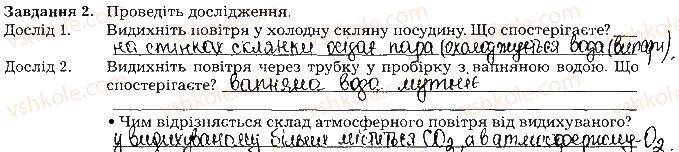 Завдання 2. Проведіть дослідження.
Дослід 1. Видихніть повітря у холодну скляну посудину. Що спостерігаєте?
на стінках склянки осідає пара (охолоджується вода (випари).
Дослід 2. Видихніть повітря через трубку у пробірку з вапняною водою. Що
спостерігаєте? вапняна вода мутніє
• Чим відрізняється склад атмосферного повітря від видихуваного?
у видихуваному більше міститься CO2, а в атмосферному - O2.